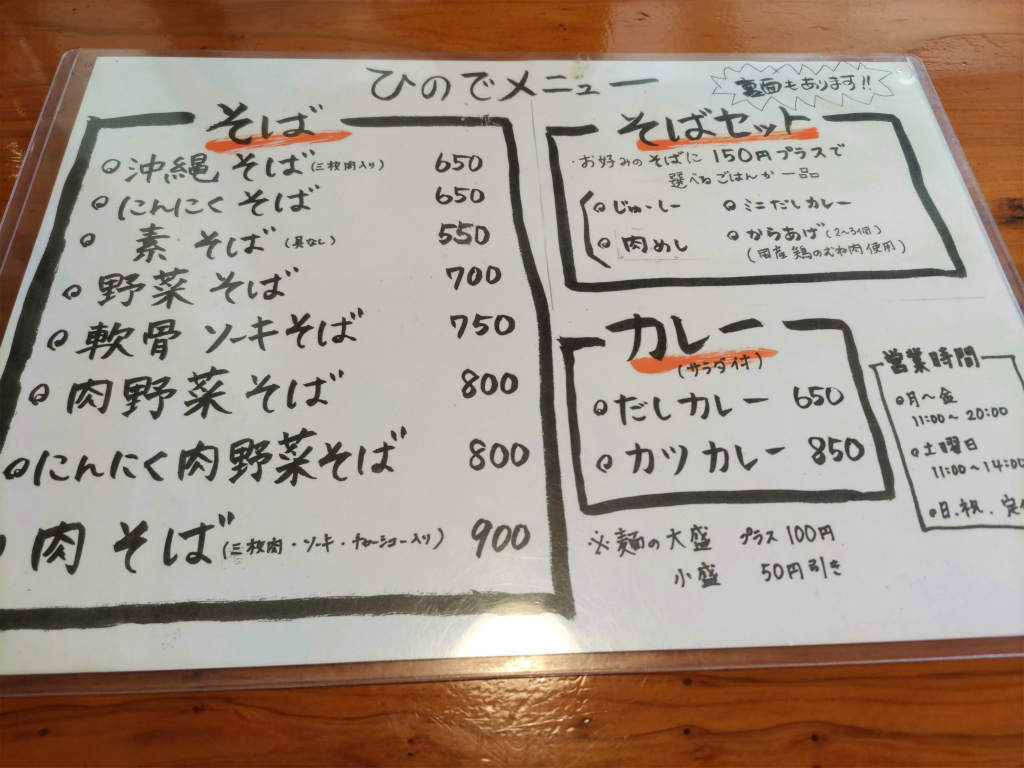 ひのでメニュー
裏面もあります!!
そば
沖縄そば(三枚肉入り) 650
にんにくそば 650
素そば(具なし) 550
野菜そば 700
軟骨ソーキそば 750
肉野菜そば 800
にんにく肉野菜そば 800
肉そば(三枚肉・ソーキ・チャーシュー入り) 900
そばセット
・お好みのそばに150円プラスで
選べるごはんか一品
じゅーしー
ミニだしカレー
肉めし
からあげ(2~3個)
(国産鶏のむね肉使用)
カレー
(サラダ付)
だしカレー 650
カツカレー 850
※麺の大盛 プラス100円
小盛 50円引き
営業時間
月~金
11:00~20:00
土曜日
11:00~14:00
日、祝、定